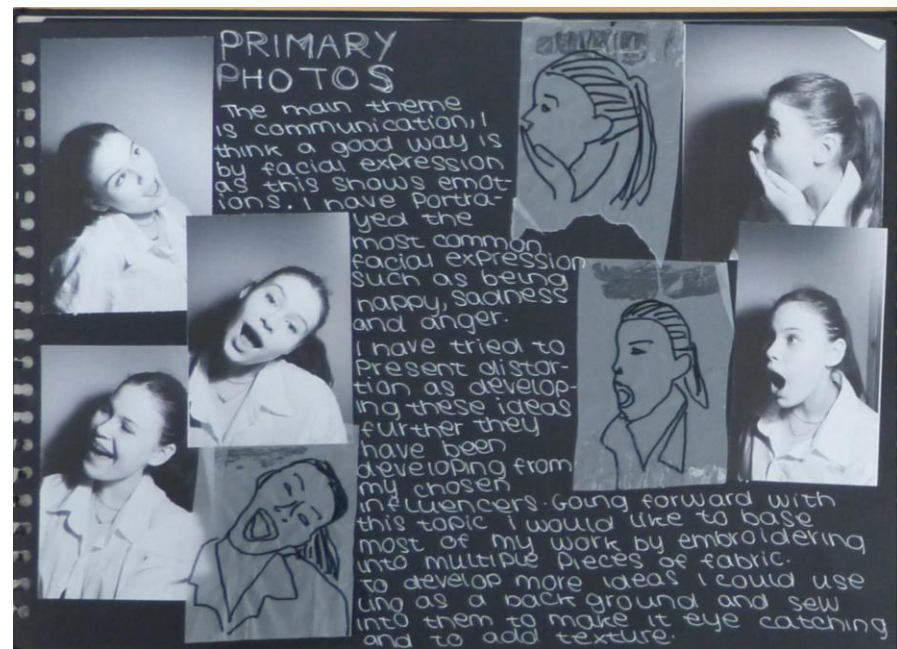 PRIMARY
PHOTOS
The main theme
is communication, I
think a good way is
by facial expression
as this shows emot-
ions. I have Portra-
yed the
most common
facial expression
such as being
happy, sadness
and anger.
I have tried to
Present distor-
tion as develop-
ing these ideas
further they
have been
developing from
my chosen
influencers. Going forward with
this topic I would like to base
most of my work by embroidering
into multiple pieces of fabric.
To develop more ideas I could use
lino as a back ground and sew
into them to make it eye catching
and to add texture.